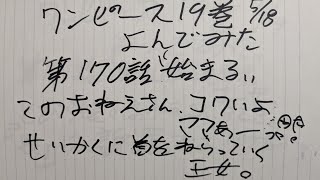 ワンピース19巻 5/18
よんでみた
第170話 始まる,,
このおねえさん、コワいよ
ママあー
せいかくに首をねらっていく
王女。